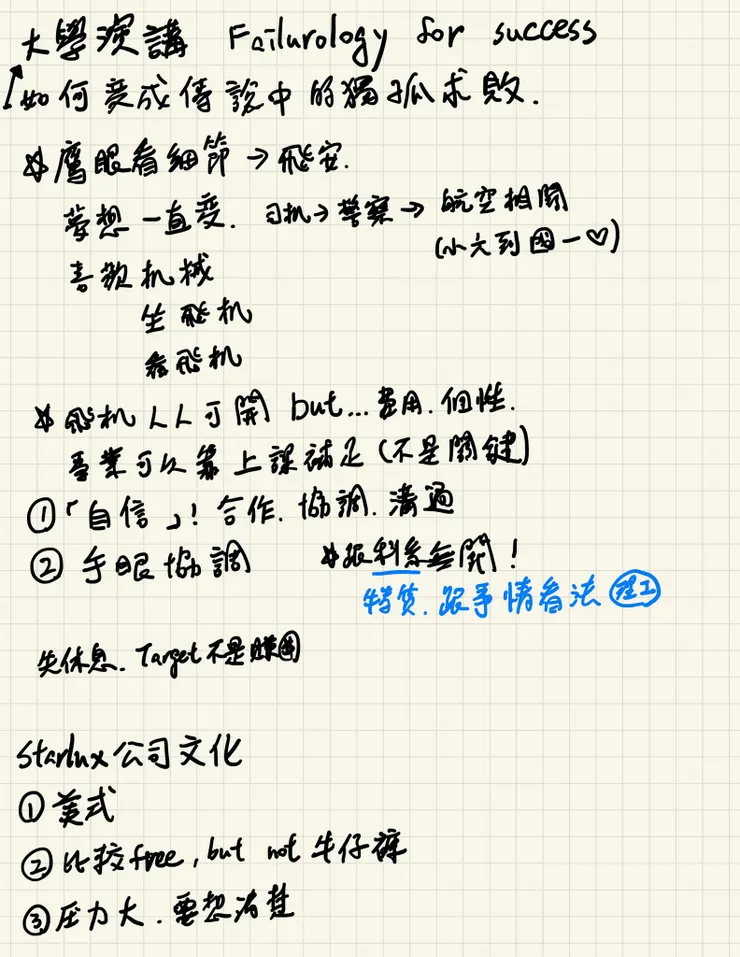 大學演講 Failurology for success
如何變成傳說中的獨孤求敗.
鷹眼看細節→飛安.
夢想一直变. 司机→警察→航空相関
(小六到國一♡)
喜歡机械
坐飛机
看飛机
飛机人人可開 but... 費用. 個性.
專業可以靠上課補足(不是関鍵)
①「自信」! 合作. 協調. 溝通
② 手眼協調 跟科系無関!
特質. 跟事情看法 理工
先休息. Target不是賺
Starlux公司文化
① 美式
② 比較free, but not 牛仔褲
③ 压力大. 要想清楚